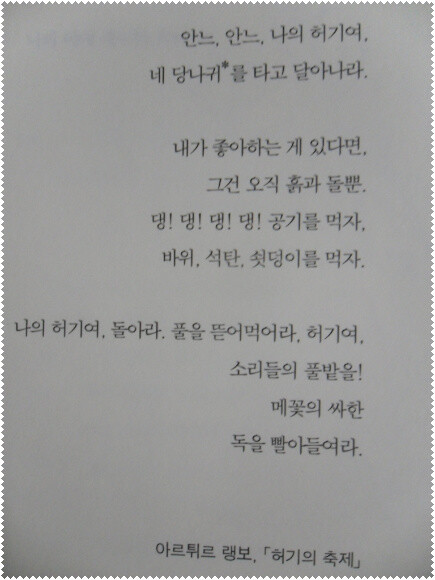 안느, 안느, 나의 허기여,
네 당나귀*를 타고 달아나라.
내가 좋아하는 게 있다면,
그건 오직 흙과 돌뿐.
댕! 댕! 댕! 댕! 공기를 먹자,
바위, 석탄, 쇳덩이를 먹자.
나의 허기여, 돌아라. 풀을 뜯어먹어라, 허기여,
소리들의 풀밭을!
메꽃의 싸한
독을 빨아들여라.
아르튀르 랭보, 「허기의 축제」